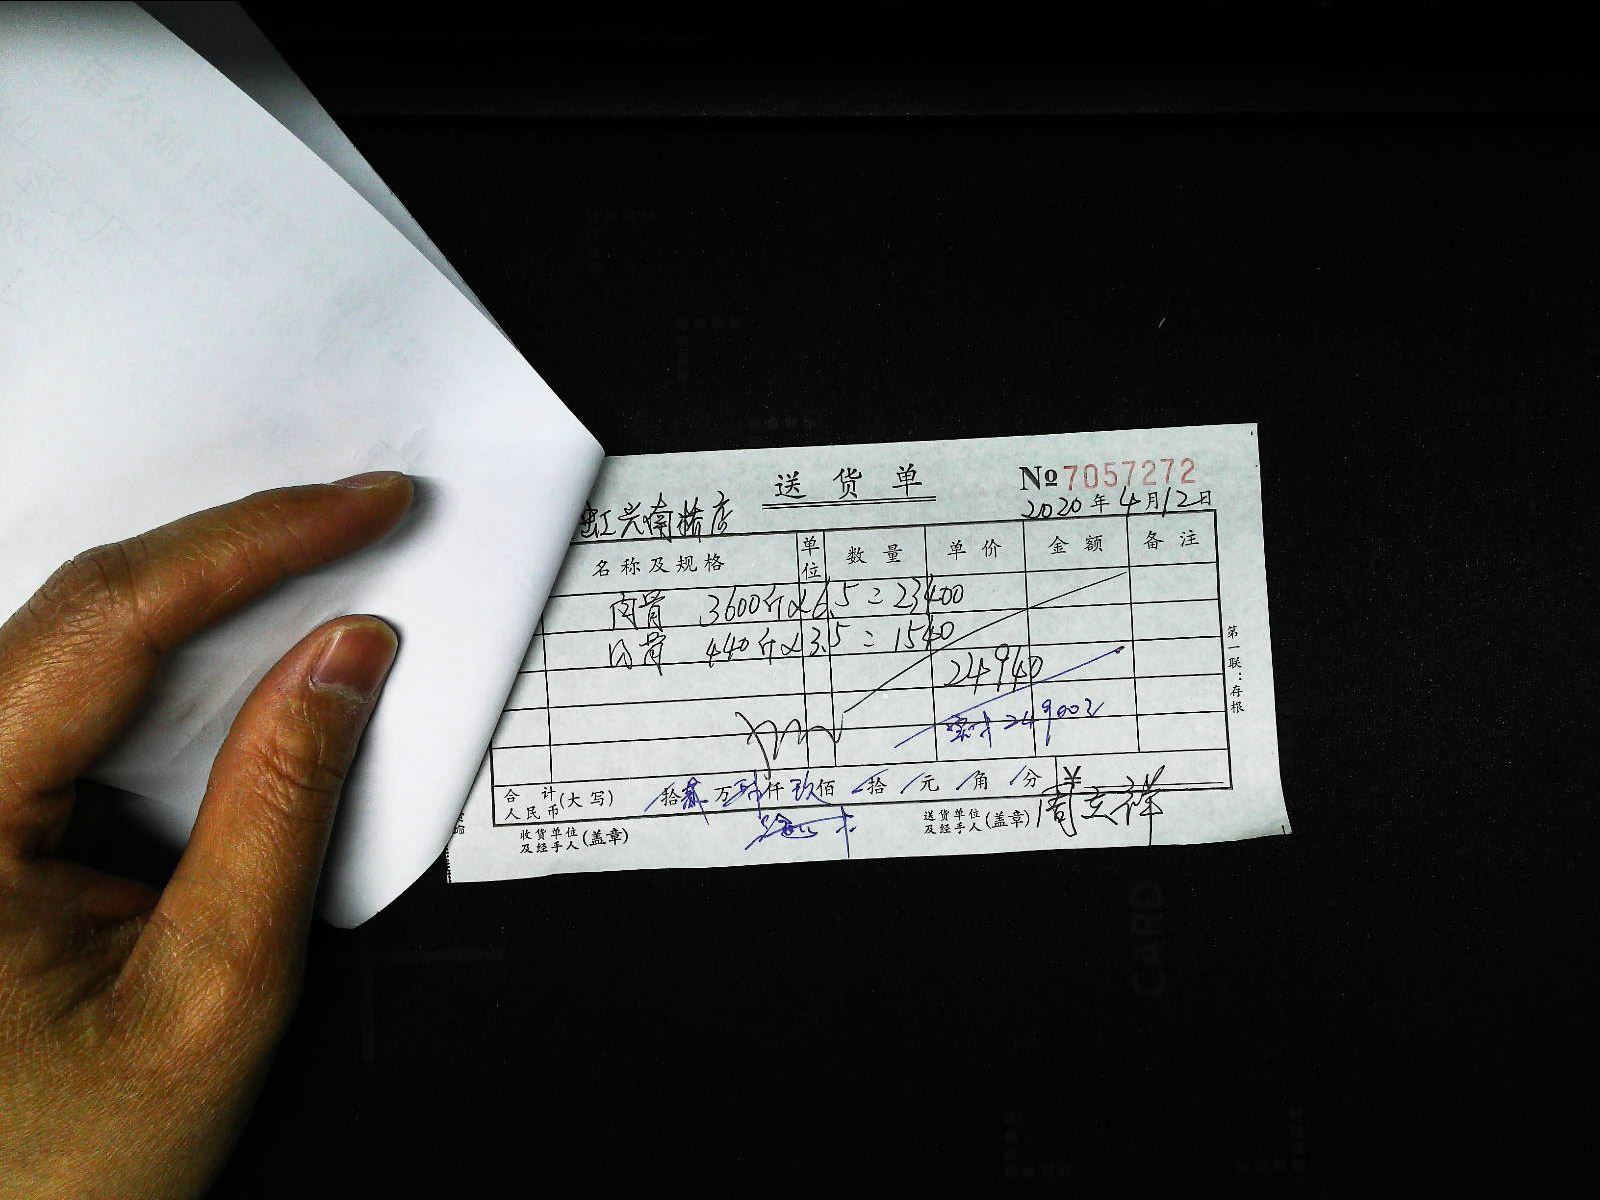 送货单
No 7057272
2020年4月12日
虹兴南桥店
名称及规格 单位 数量 单价 金额 备注
肉骨 3600斤×6.5=23400
骨 440斤×3.5=1540
24940
24900元
第一联:存根
合计人民币(大写) 拾贰万肆仟玖佰 拾 元 角 分 ¥
收货单位及经手人(盖章)
送货单位及经手人(盖章) 周立祥
CARD